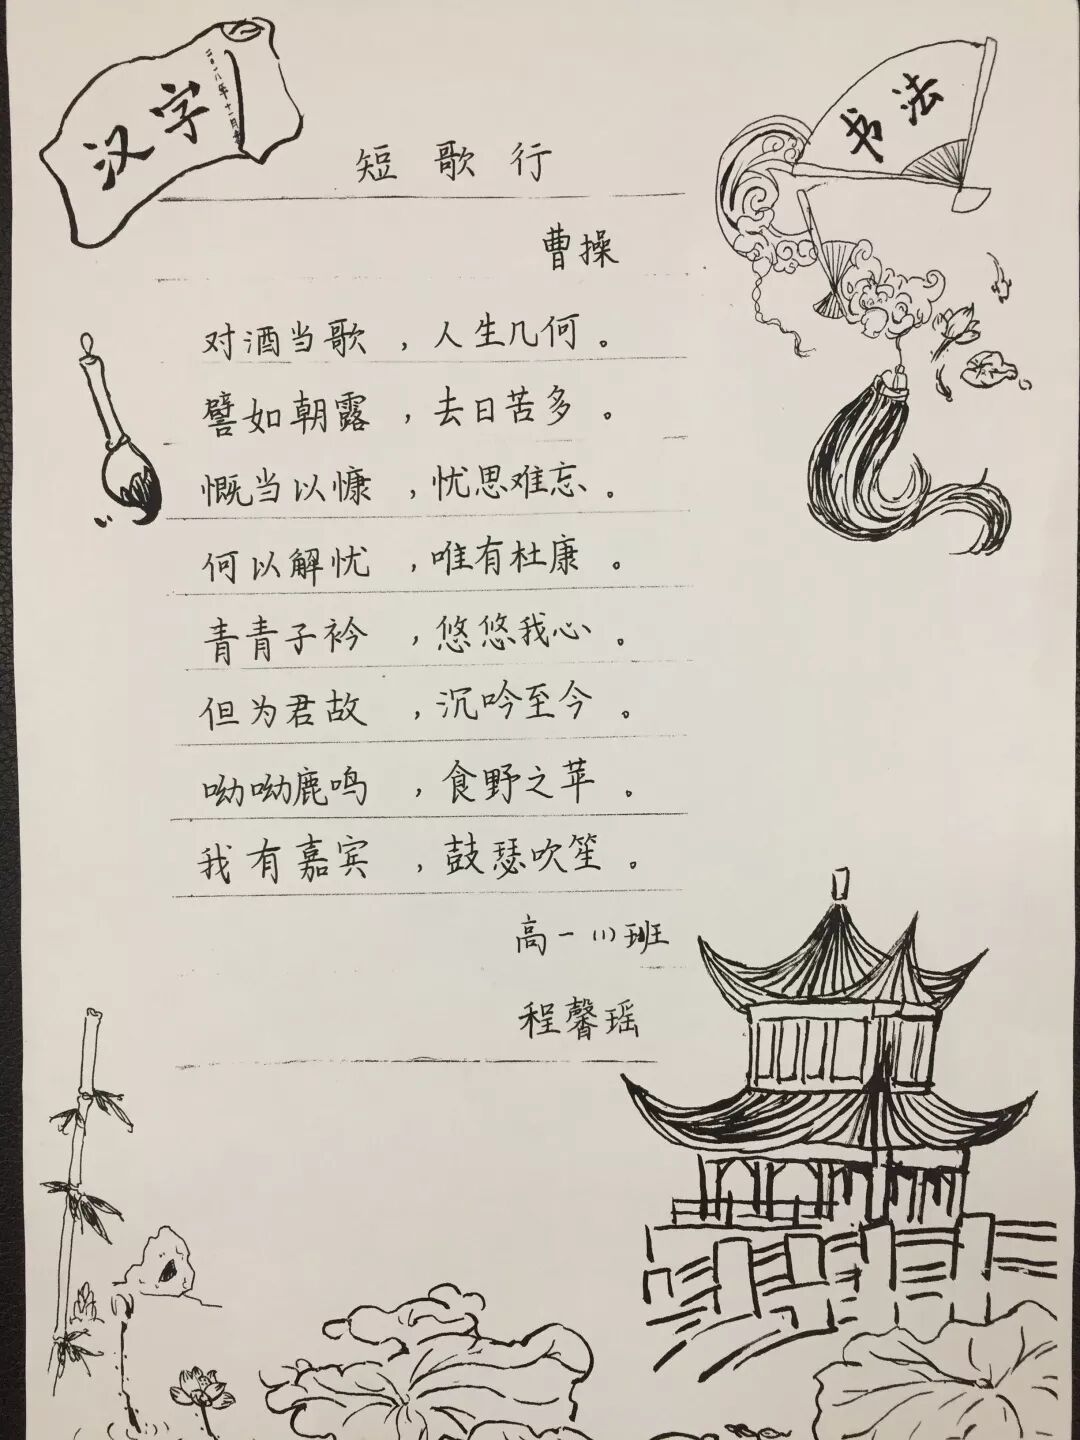 汉字
二〇一八年十一月
书法
短歌行
曹操
对酒当歌，人生几何。
譬如朝露，去日苦多。
慨当以慷，忧思难忘。
何以解忧，唯有杜康。
青青子衿，悠悠我心。
但为君故，沉吟至今。
呦呦鹿鸣，食野之苹。
我有嘉宾，鼓瑟吹笙。
高一(1)班
程馨瑶